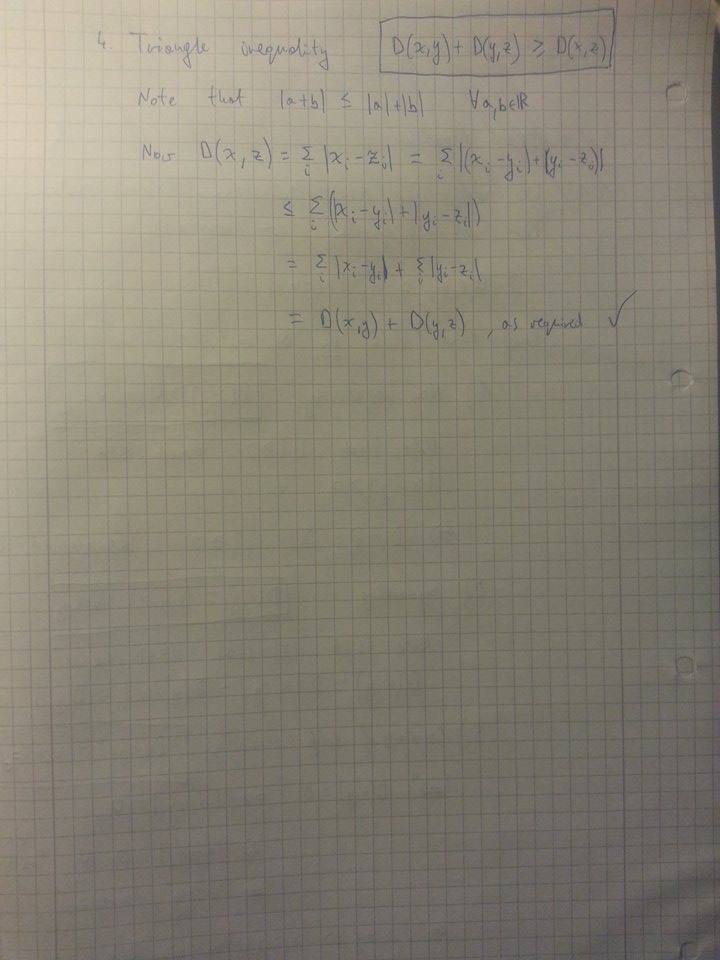 4. Triangle inequality D(x,y) + D(y,z) ≥ D(x,z)
Note that |a+b| ≤ |a|+|b| ∀a,b∈ℝ
Now D(x,z) = Σ_i |x_i - z_i| = Σ_i |(x_i - y_i) + (y_i - z_i)|
≤ Σ_i (|x_i - y_i| + |y_i - z_i|)
= Σ_i |x_i - y_i| + Σ_i |y_i - z_i|
= D(x,y) + D(y,z) , as required ✓